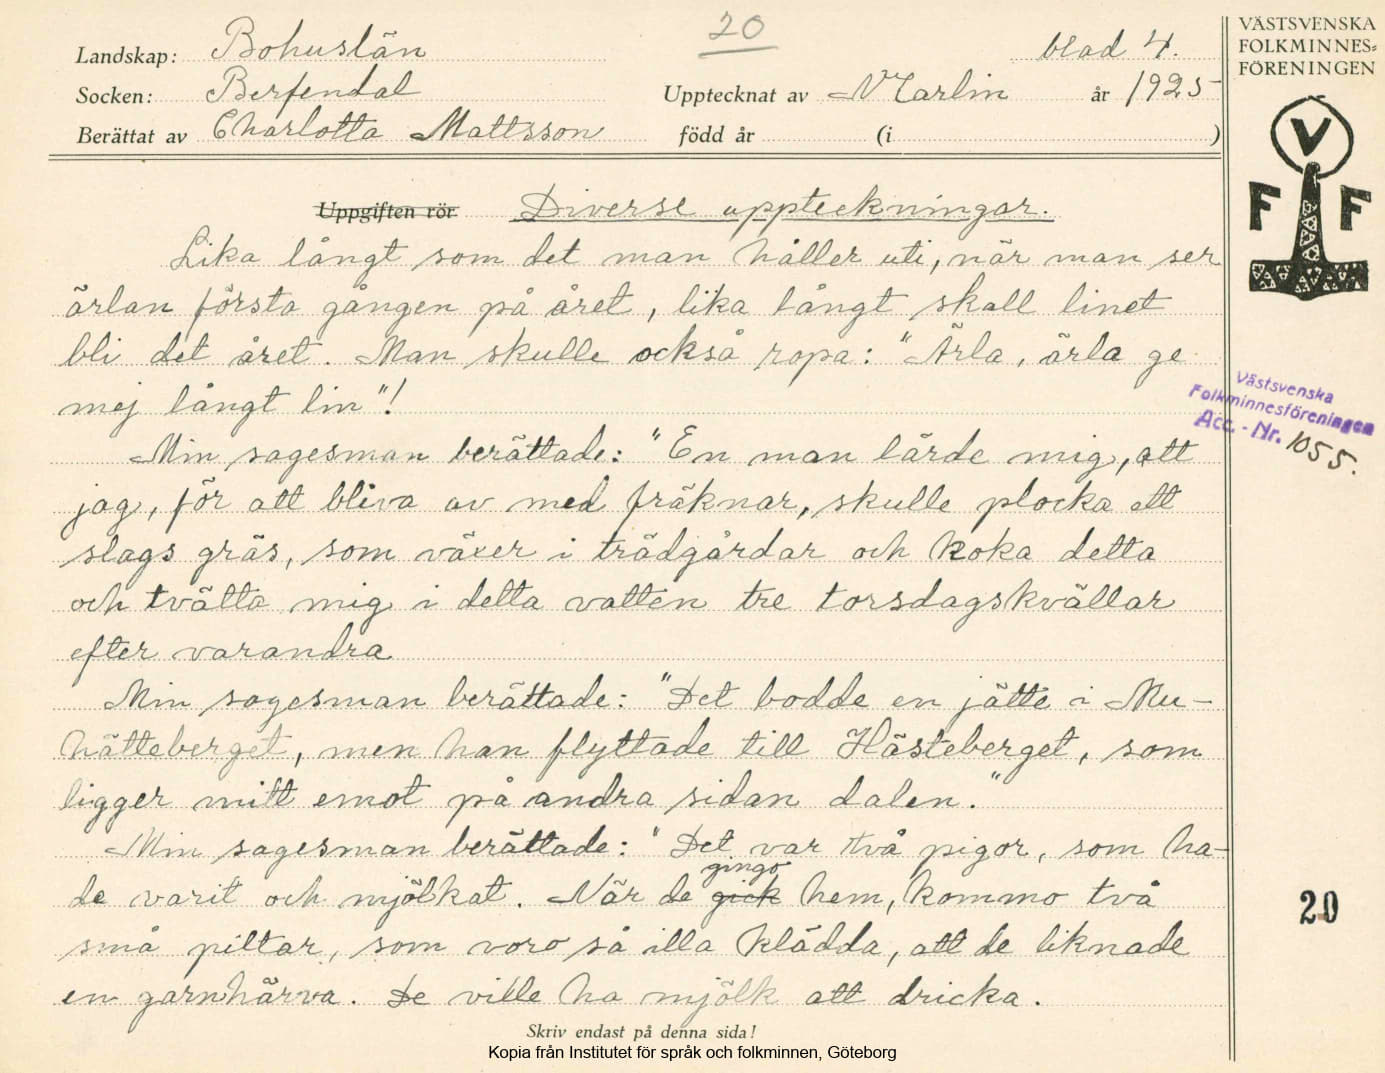 20
VÄSTSVENSKA
FOLKMINNES-
FÖRENINGEN
Landskap: Bohuslän blad 4.
Socken: Berfendal Upptecknat av N Carlin år 1925
Berättat av Charlotta Mattsson född år (i )
V
F F
Uppgiften rör Diverse uppteckningar.
Lika långt som det man håller uti, när man ser
ärlan första gången på året, lika långt skall linet
bli det året. Man skulle också ropa: "Ärla, ärla ge
mej långt lin"!
Västsvenska
Folkminnesföreningen
Acc. - Nr. 1055.
Min sagesman berättade: "En man lärde mig, att
jag, för att bliva av med fräknar, skulle plocka ett
slags gräs, som växer i trädgårdar och koka detta
och tvätta mig i detta vatten tre torsdagskvällar
efter varandra
Min sagesman berättade: "Det bodde en jätte i Mu-
hätteberget, men han flyttade till Hästeberget, som
ligger mitt emot på andra sidan dalen."
Min sagesman berättade: "Det var två pigor, som ha-
gingo
de varit och mjölkat. När de gick hem, kommo två
20
små piltar, som voro så illa klädda, att de liknade
en garnhärva. De ville ha mjölk att dricka.
Skriv endast på denna sida!
Kopia från Institutet för språk och folkminnen, Göteborg